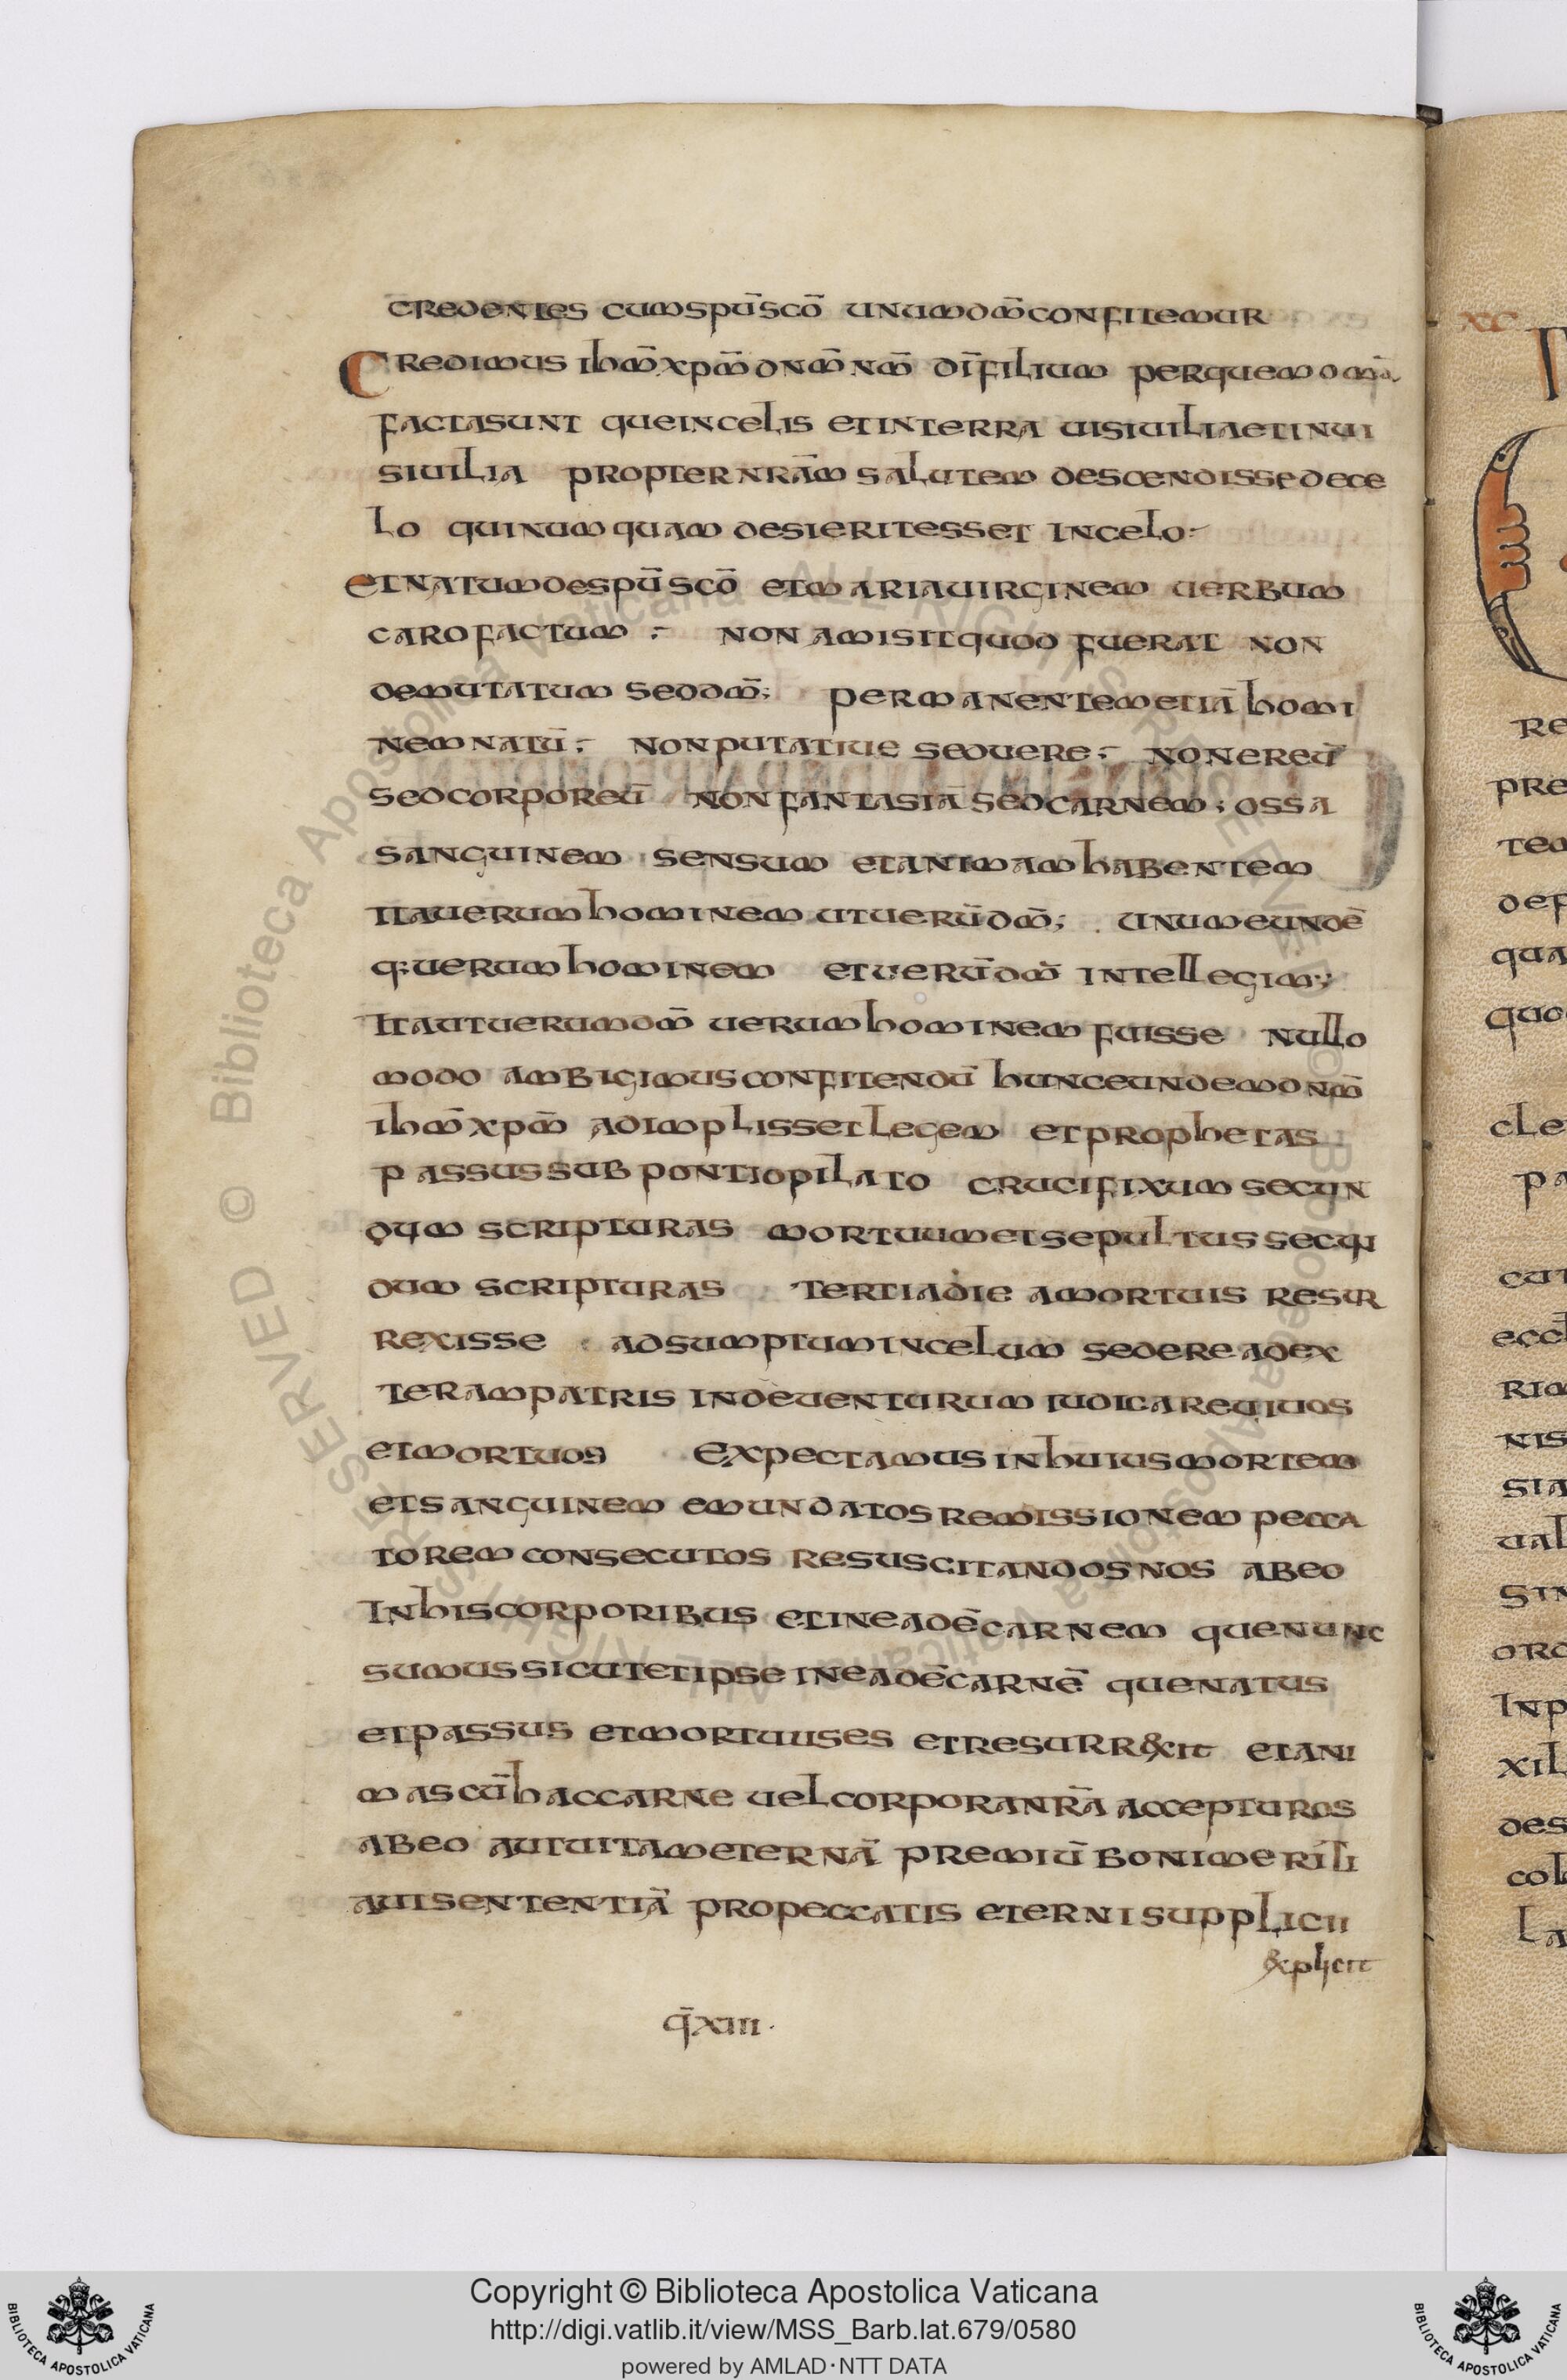 credentes cum sp̄u sc̄o unum dm̄ confitemur
Credimus ihm̄ xpm̄ dnm̄ nm̄ dī filium per quem om̄a
facta sunt que in celis et in terra uisiuilia et inui
siuilia propter nrām salutem descendisse de ce
lo qui numquam desierit esset in celo
et natum de spū scō et maria uirginem uerbum
caro factum non amisit quod fuerat non
demutatum sed dm̄; permanentem etiā homi
nem natū; non putatiue sed uere; non ereū
sed corporeū non fantasia sed carnem; ossa
sanguinem sensum et animam habentem
ita uerum hominem ut uerū dm̄; unum eundē
q; uerum hominem et uerū dm̄ intellegim;
Ita ut uerum dm̄ uerum hominem fuisse nullo
modo ambigimus confitendū hunc eundem dnm̄
ihm̄ xpm̄ adimplisset legem et prophetas
passus sub pontio pilato crucifixum secun
dum scripturas mortuum et sepultus secun
dum scripturas tertia die a mortuis resur
rexisse adsumptum in celum sedere ad ex
teram patris inde uenturum iudicare uiuos
et mortuos Expectamus in huius mortem
et sanguinem emundatos remissionem pecca
torem consecutos resuscitandos nos ab eo
In his corporibus et in eadē carnem que nunc
sumus sicut et ipse in eadē carnē que natus
et passus et mortuus es et resurr&xit et ani
mas cū hac carne uel corpora nrā accepturos
ab eo aut uitam eternā premiū boni meriti
aut sententiā pro peccatis eterni supplicii
&xplicit
q̄ xiii.
xc
re
pre
tem
def
qua
quo
cle
pa
cut
eccl
rim
nis
sia
ual
sin
ord
Inp
xil
des
col
la
© Biblioteca Apostolica Vaticana ALL RIGHTS RESERVED
Copyright © Biblioteca Apostolica Vaticana
http://digi.vatlib.it/view/MSS_Barb.lat.679/0580
powered by AMLAD·NTT DATA
BIBLIOTECA APOSTOLICA VATICANA
BIBLIOTECA APOSTOLICA VATICANA